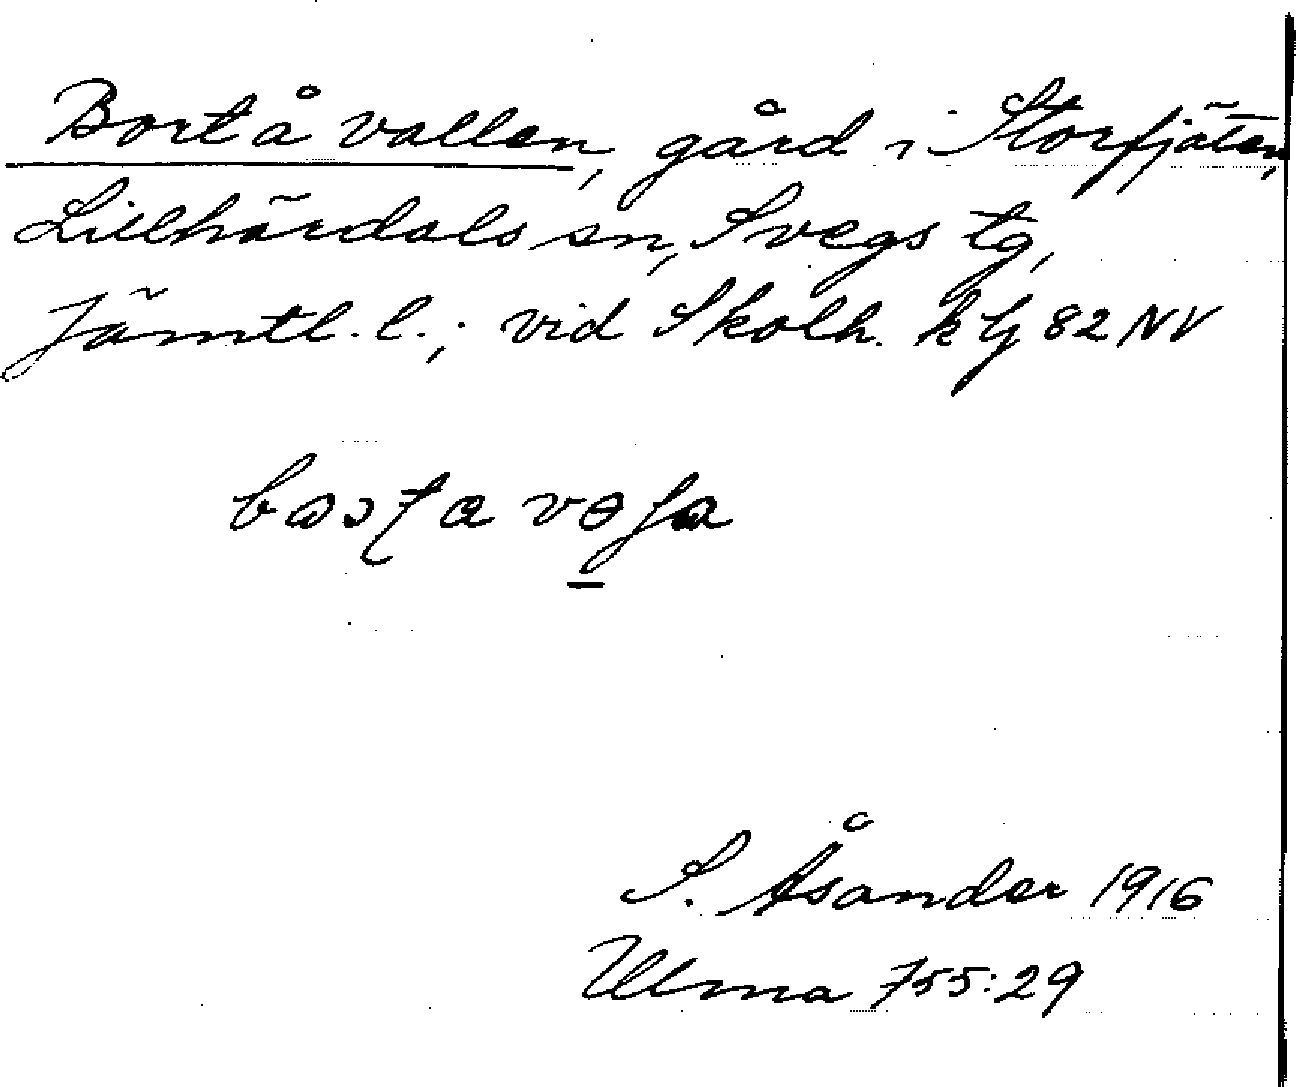 Bortå vallen, gård i Storfjäten,
Lillhärdals sn, Svegs tg,
Jämtl. l.; vid Skolh. kg 82 NV
S. Åsander 1916
Ulma 755:29